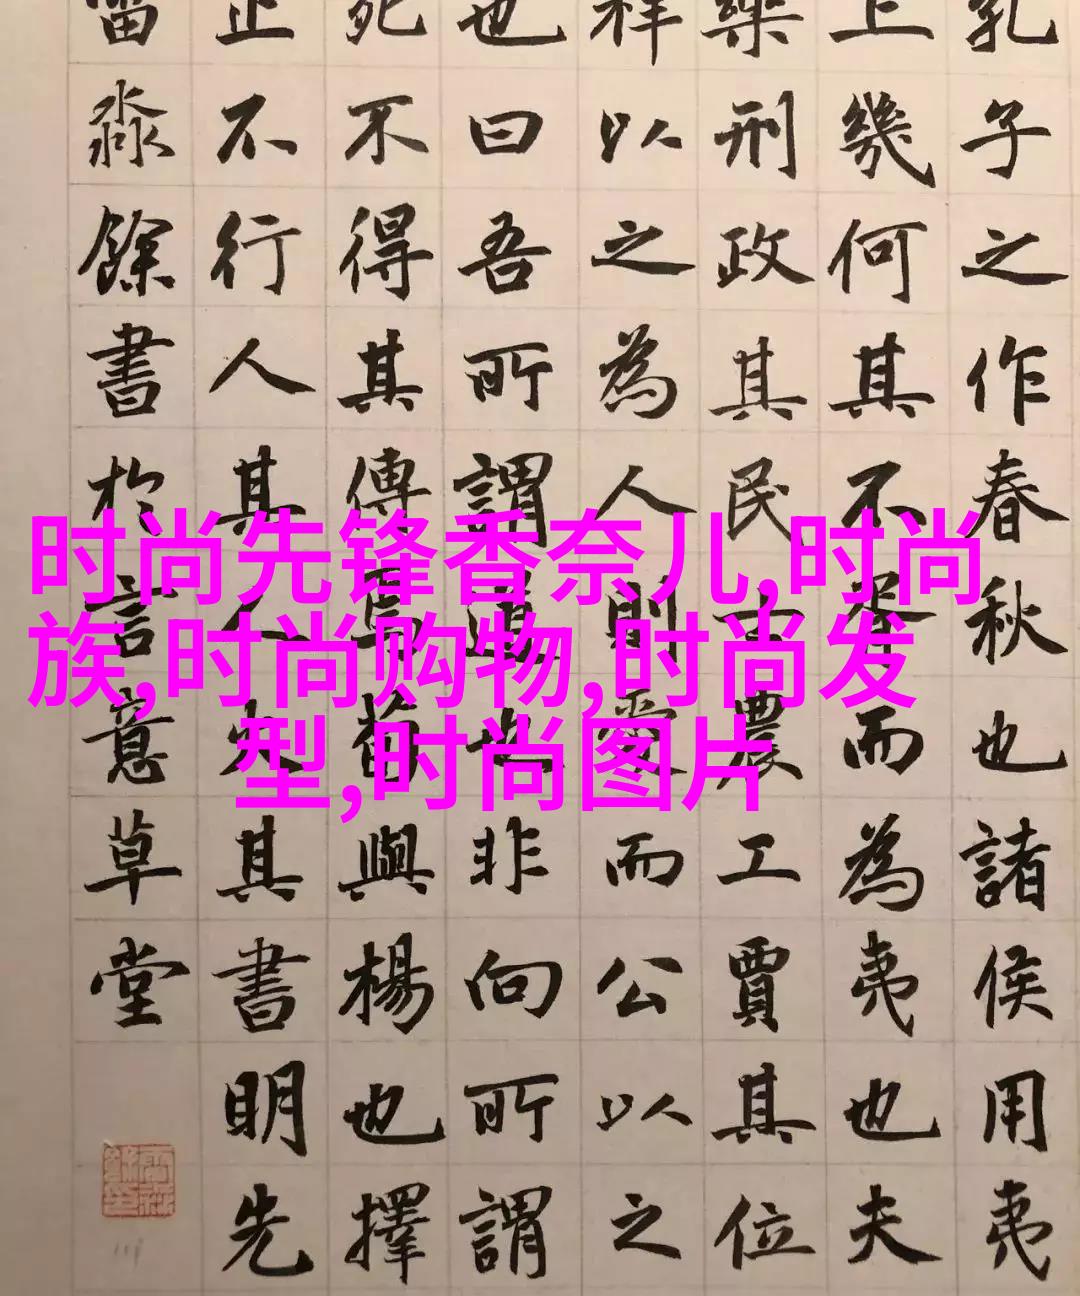 孔子之作春秋也諸侯用夷
上幾何其不胥而為夷也夫
樂刑政其民士農工賈其位
祥以之為人則愛而公以之
也曰吾所謂道也非向所謂
死不得其傳焉荀與楊也擇
止不行人其人火其書明先
淼餘書於言意草堂
时尚先锋香奈儿,时尚
族,时尚购物,时尚发
型,时尚图片